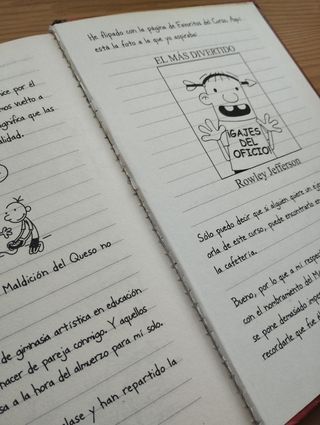 ice por el
mos vuelto a
gnifica que las
alidad.
Maldición del Queso no
de gimnasia artística en educación
hacer de pareja conmigo. Y aquellos
sa a la hora del almuerzo para mí solo.
lase y han repartido la
He flipado con la página de Favoritos del Curso. Aquí
está la foto a la que yo aspiraba:
EL MÁS DIVERTIDO
¡GAJES
DEL
OFICIO!
Rowley Jefferson
Sólo puedo decir que si alguien quiere un eje
orla de este curso, puede encontrarlo en
la cafetería.
Bueno, por lo que a mí respec
con el nombramiento del M
se pone demasiado imper
recordarle que fue él